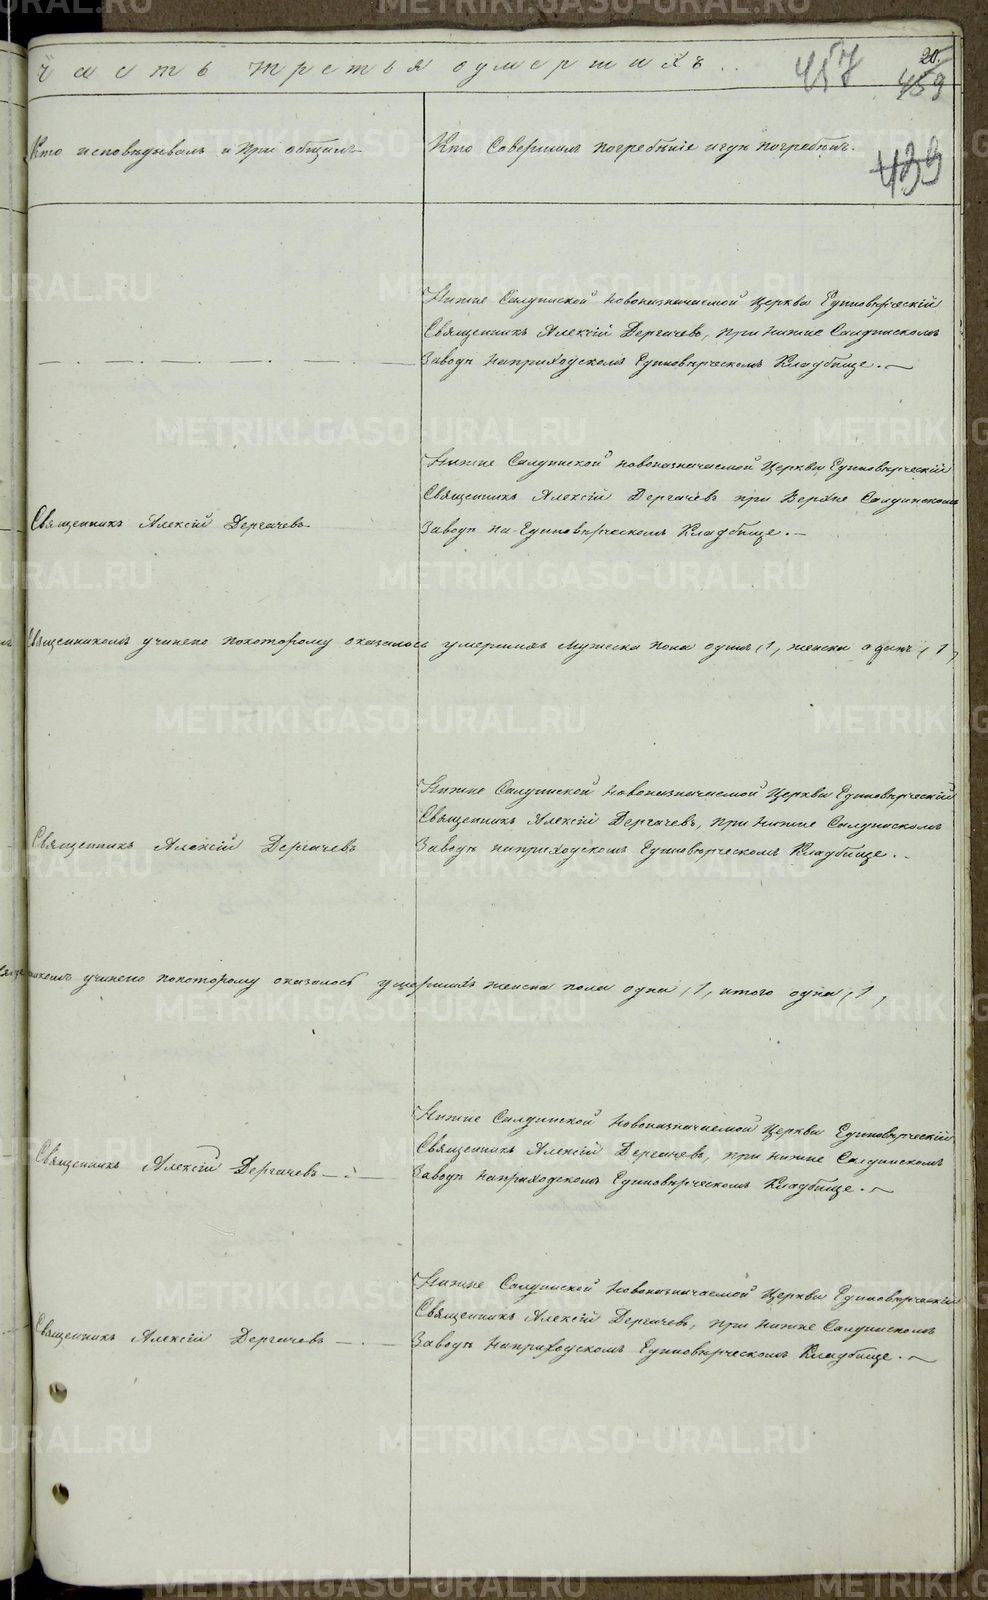 Часть третья о умершихъ..
457
20.
459
439
Кто исповѣдывалъ и при общалъ
Кто Совершилъ погребѣніе игдѣ погребѣнъ.
Нижне Салдинской новоназначаемой Церкви Единовѣрческій
Священникъ Алексій Дергачевъ, при Нижне Салдинскомъ
Заводѣ наприходскомъ Единовѣрческомъ Кладбище.
Священникъ Алексій Дергачевъ
Нижне Салдинской новоназначаемой Церкви Единовѣрческій
Священникъ Алексій Дергачевъ при Верхне Салдинскомъ
Заводѣ на Единовѣрческомъ Кладбище.
Священникомъ учинено покоторому оказалось умершихъ мужеска пола одинъ, 1, женска одинъ, 1,
Священникъ Алексій Дергачевъ
Нижне Салдинской новоназначаемой Церкви Единовѣрческій
Священникъ Алексій Дергачевъ, при Нижне Салдинскомъ
Заводѣ наприходскомъ Единовѣрческомъ Кладбище.
учинено покоторому оказалось умершихъ женска пола одна, 1, итого одна, 1,
Священникъ Алексій Дергачевъ
Нижне Салдинской новоназначаемой Церкви Единовѣрческій
Священникъ Алексій Дергачевъ, при Нижне Салдинскомъ
Заводѣ наприходскомъ Единовѣрческомъ Кладбище.
Священникъ Алексій Дергачевъ
Нижне Салдинской новоназначаемой Церкви Единовѣрческій
Священникъ Алексій Дергачевъ, при Нижне Салдинскомъ
Заводѣ наприходскомъ Единовѣрческомъ Кладбище.
METRIKI.GASO-URAL.RU